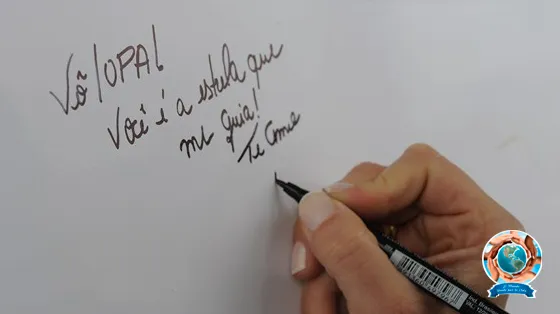 Vô/OPA!
Você é a estrela que
me guia!
Te